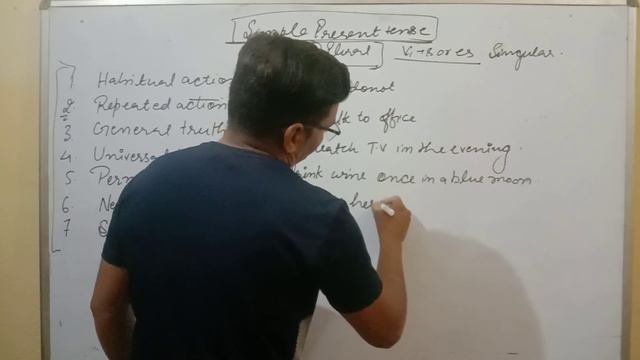 Simple Present tense
Plural V1+s or es Singular.
1 Habitual action donot
2. Repeated action to office
3. General truth
4. Universal watch TV in the evening.
5 drink wine once in a blue moon
6. he
7